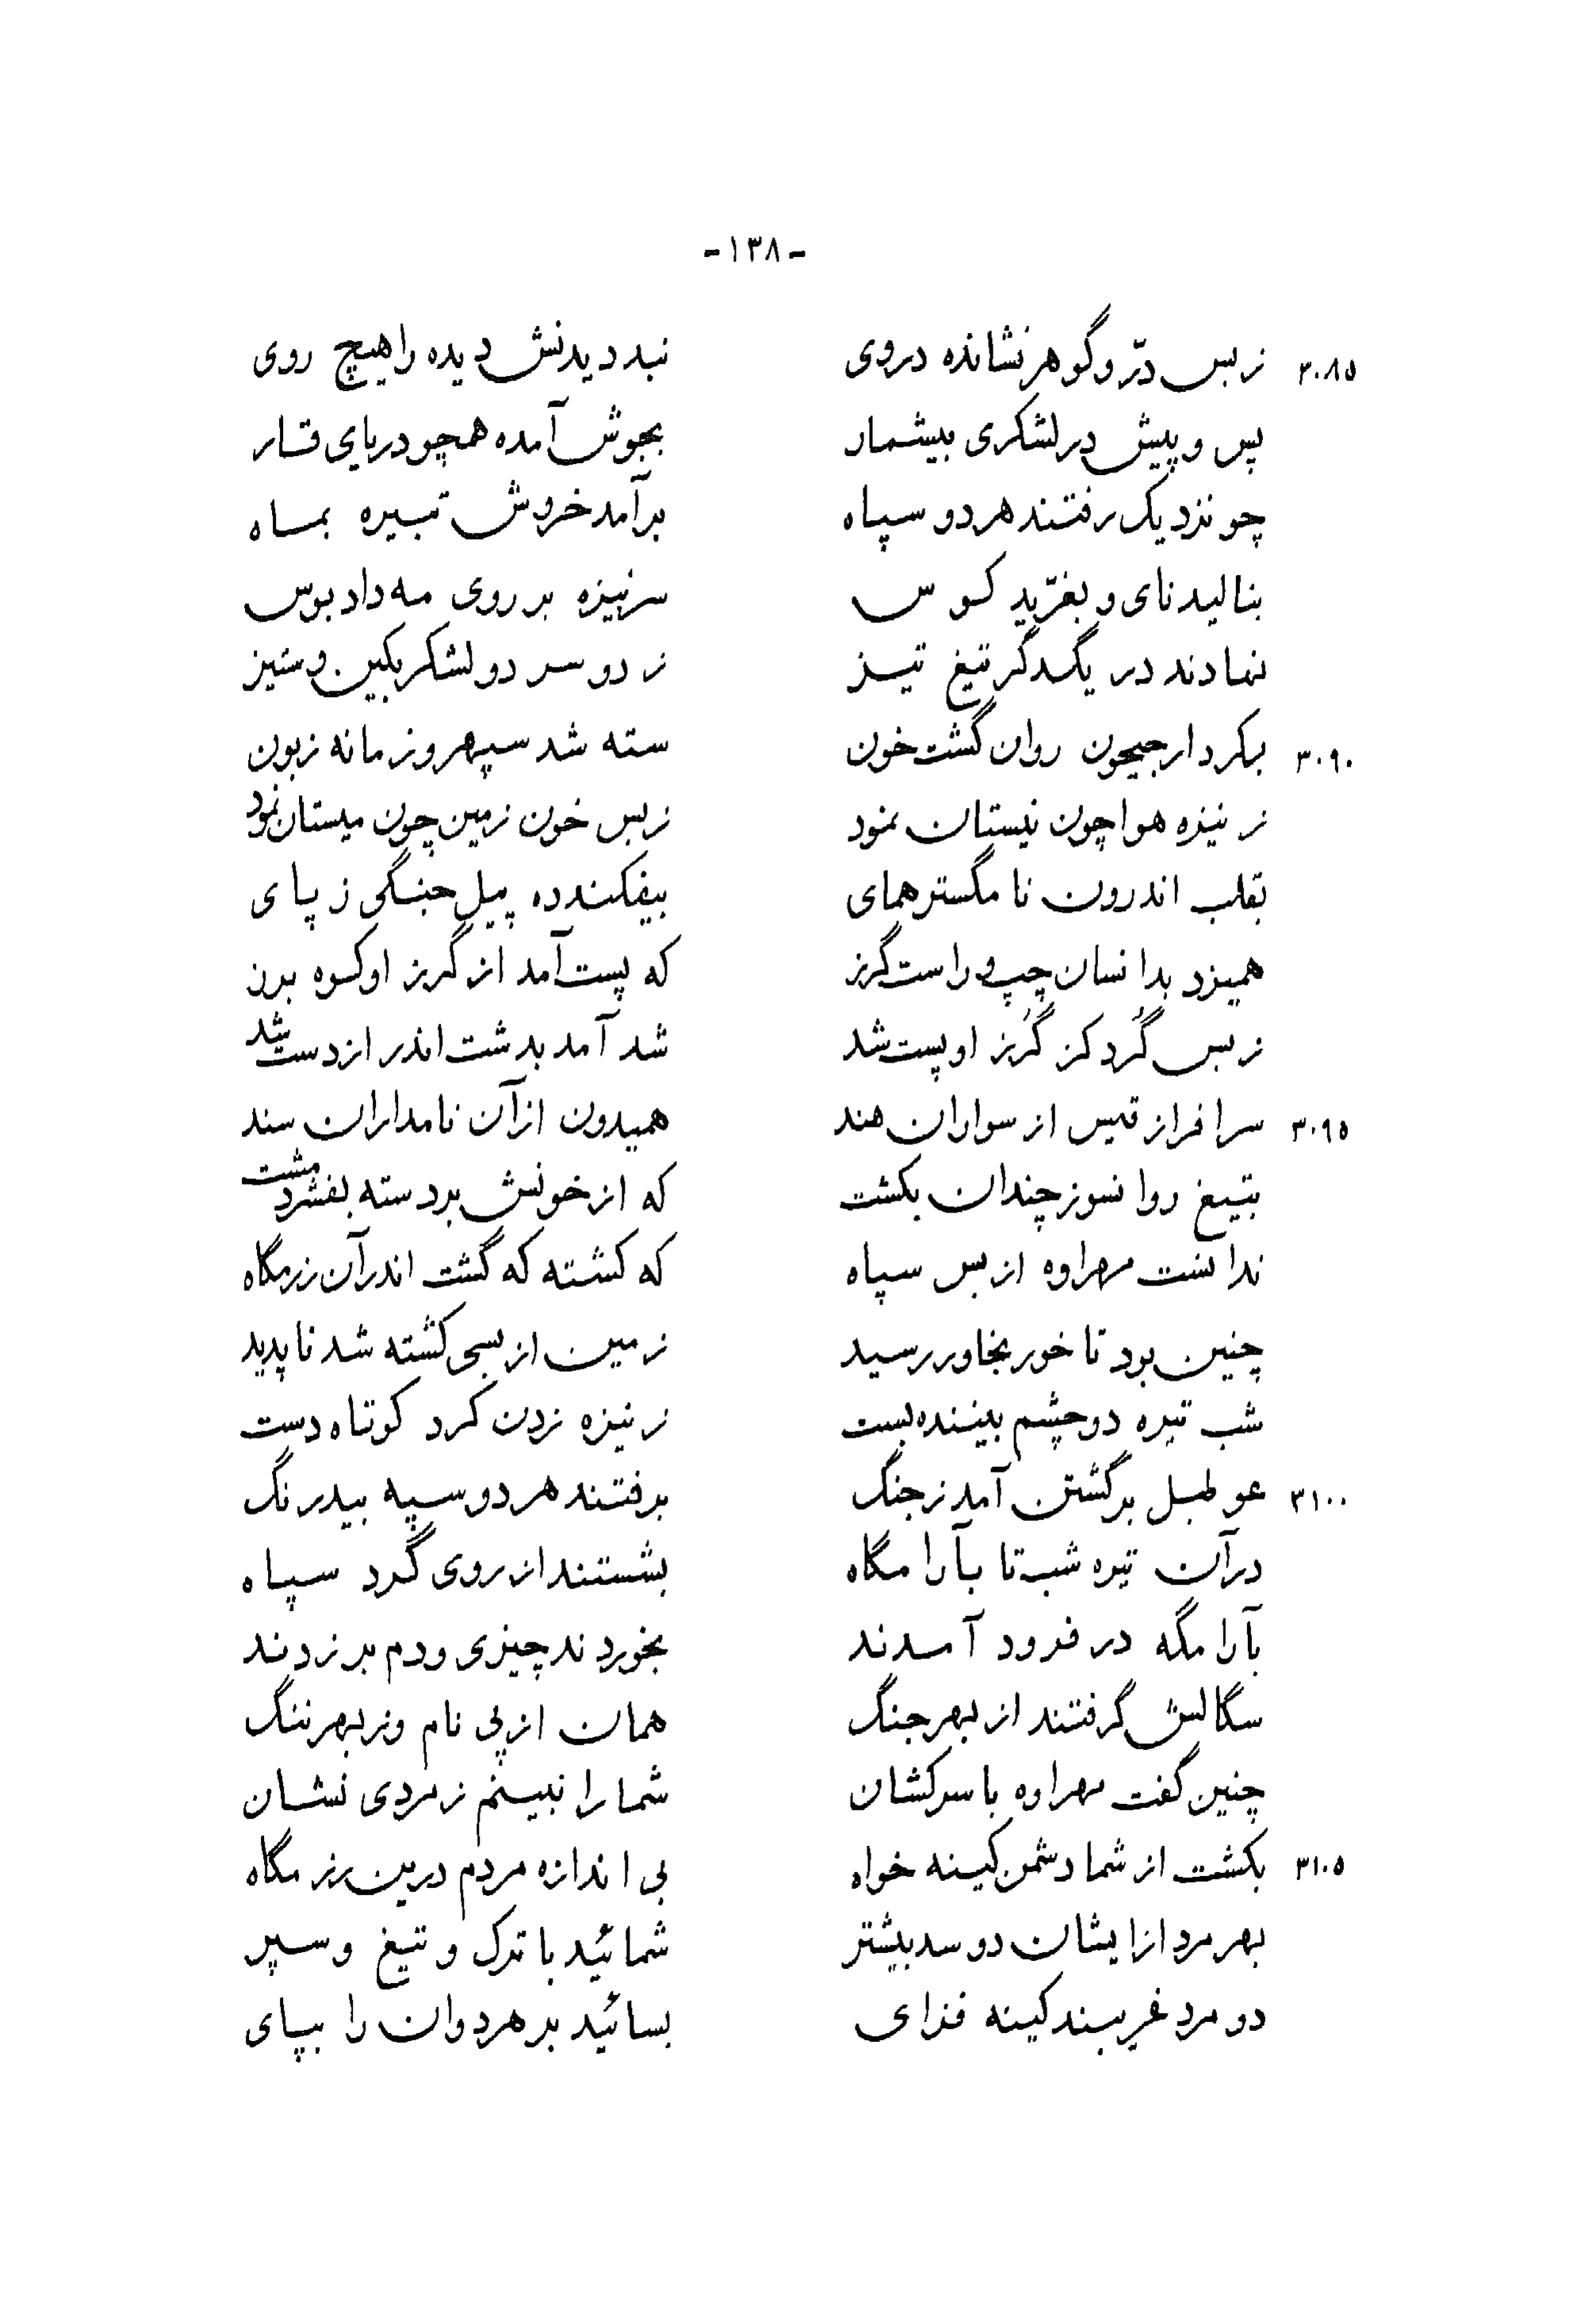 -۱۳۸-
۳۰۸۵ ز بس درّ و گوهر نشانده دروی نبد دیدنش دیده را هیچ روی
پس و پیش در لشکری بیشمار بجوش آمده همچو دریای قار
چو نزدیک رفتند هر دو سپاه برآمد خروش تبیره بماه
بنالید نای و بغرّید کوس سر نیزه بر روی مه داد بوس
نهادند در یکدگر تیغ تیز ز دو سر دو لشکر بکین و ستیز
۳۰۹۰ بکردار جیحون روان گشت خون سته شد سپهر و زمانه زبون
ز نیزه هوا چون نیستان نمود ز بس خون زمین چون میستان نمود
بقلب اندرون نامگستر همای بیفکند ده پیل جنگی ز پای
همیزد بدانسان چپ و راست گرز که پست آمد از گرز او کوه برز
ز بس گُرد کز گُرز او پست شد شد آمد بدشت اندر از دست شد
۳۰۹۵ سرافراز قیس از سواران هند همیدون از آن نامداران سند
بتیغ روانسوز چندان بکشت که از خونش بر دسته بفشرد مشت
ندانست مهراوه از بس سپاه که کشته که گشت اندر آن رزمگاه
چنین بود تا خور بخاور رسید زمین از بسی کشته شد ناپدید
شب تیره دو چشم بیننده بست ز نیزه زدن کرد کوتاه دست
۳۱۰۰ عو طبل برگشتن آمد ز جنگ برفتند هر دو سپه بیدرنگ
در آن تیره شب تا بآرامگاه بشستند از روی گرد سپاه
بآرامگه در فرود آمدند بخوردند چیزی و دم بر زدند
سگالش گرفتند از بهر جنگ همان از پی نام وز بهر ننگ
چنین گفت مهراوه با سرکشان شما را نبینم ز مردی نشان
۳۱۰۵ بکشت از شما دشمن کینه خواه بی اندازه مردم درین رزمگاه
بهر مرد ازایشان دو سد بیشتر شمائید با ترک و تیغ و سپر
دو مرد غریبند کینه فزای بسائید بر هردوان را بپای